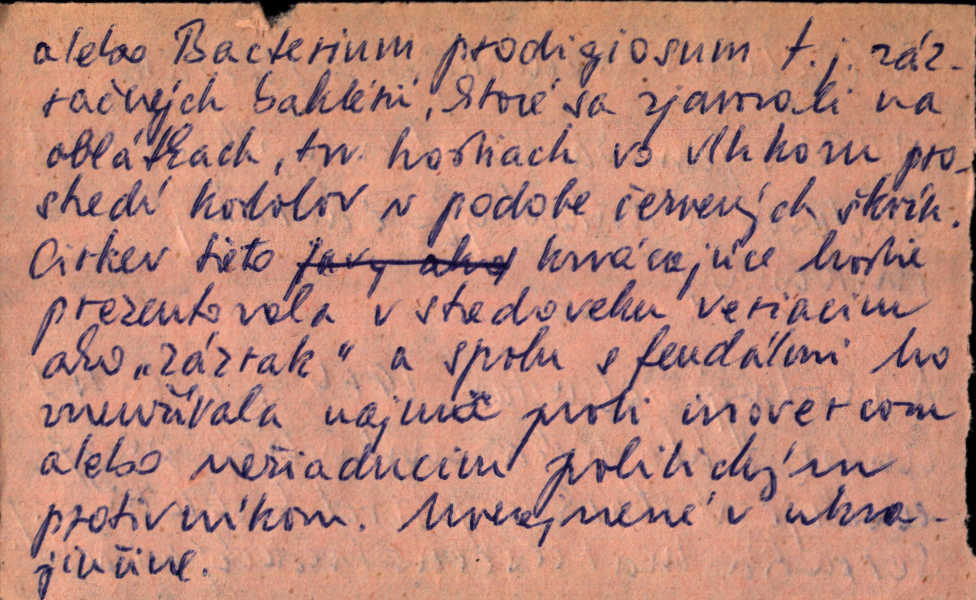 alebo Bacterium prodigiosum t. j. záz-
račných baktérií, ktoré sa zjavovali na
oblátkach, tzv. hostiach vo vlhkom pro-
stredí kostolov v podobe červených škvŕn.
Cirkev tieto javy ako krvácajúce hostie
prezentovala v stredoveku veriacim
ako „zázrak" a spolu s feudálmi ho
zneužívala najmä proti inovercom
alebo nežiaducim politickým
protivníkom. Uverejnené v ukra-
jinčine.